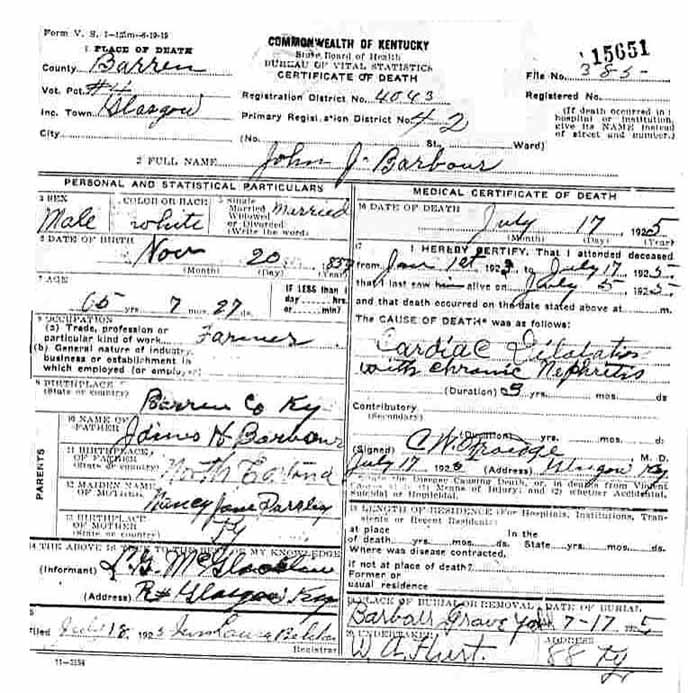 Form V. S. 1-125m-6-19-19
1 PLACE OF DEATH
County Barren
Vot. Pct. #4
Inc. Town Glasgow
City
COMMONWEALTH OF KENTUCKY
State Board of Health
BUREAU OF VITAL STATISTICS
CERTIFICATE OF DEATH
Registration District No. 4043
Primary Registration District No. 42
(No. St. Ward)
15651
File No. 385-
Registered No.
(If death occurred in a
hospital or institution,
give its NAME instead
of street and number.)
2 FULL NAME John J. Barbour
PERSONAL AND STATISTICAL PARTICULARS
3 SEX
Male
COLOR OR RACE
white
5 Single
Married
Widowed
or Divorced
(Write the word)
Married
6 DATE OF BIRTH
Nov 20 1857
(Month) (Day) (Year)
7 AGE
65 yrs. 7 mos. 27 ds.
IF LESS than 1
day hrs.
or min?
8 OCCUPATION
(a) Trade, profession or
particular kind of work Farmer
(b) General nature of industry,
business or establishment in
which employed (or employer)
9 BIRTHPLACE
(State or country)
Barren Co Ky
PARENTS
10 NAME OF
FATHER
H Barbour
11 BIRTHPLACE
OF FATHER
(State or country)
North
12 MAIDEN NAME
OF MOTHER
Nancy Jane
13 BIRTHPLACE
OF MOTHER
(State or country)
Ky
14 THE ABOVE IS TRUE TO THE BEST OF MY KNOWLEDGE
(Informant)
(Address) Glasgow Ky
15
Filed July 18, 192
Registrar
11-3184
MEDICAL CERTIFICATE OF DEATH
16 DATE OF DEATH
July 17 1925
(Month) (Day) (Year)
I HEREBY CERTIFY, That I attended deceased
from Jan 1st 192 to July 17 192
that I last saw him alive on July 5, 192
and that death occurred on the date stated above at m.
The CAUSE OF DEATH* was as follows:
Cardiac Dilatation
with chronic Nephritis
(Duration) yrs. mos. ds
Contributory
(Secondary)
(Duration) yrs. mos. ds.
(Signed) M. D.
July 17 192 (Address) Glasgow Ky
*State the Disease Causing Death, or, in deaths from Violent
Causes, state (1) Means of Injury; and (2) whether Accidental,
Suicidal or Homicidal.
18 LENGTH OF RESIDENCE (For Hospitals, Institutions, Tran-
sients or Recent Residents)
at place In the
of death yrs. mos. ds. State yrs. mos. ds.
Where was disease contracted,
if not at place of death?
Former or
usual residence
19 PLACE OF BURIAL OR REMOVAL DATE OF BURIAL
Grave Yard 7-17 192
20 UNDERTAKER ADDRESS
W A Hurt.